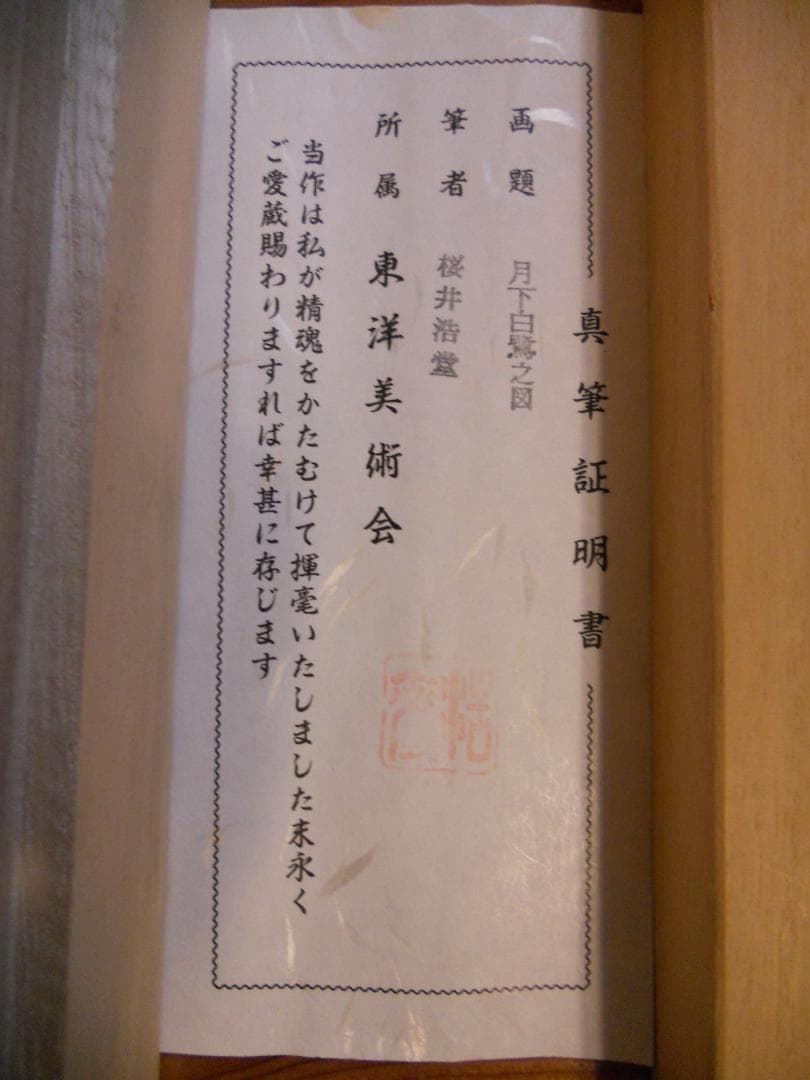 真筆証明書
画題 月下白鷺之図
筆者 桜井浩堂
所属 東洋美術会
当作は私が精魂をかたむけて揮毫いたしました末永く
ご愛蔵賜わりますれば幸甚に存じます